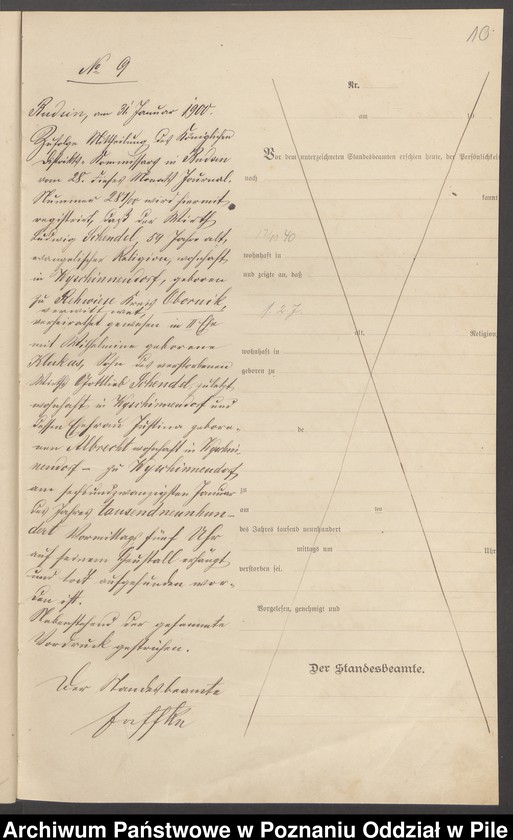 10
№ 9
Rudsin, am 31 Januar 1900.
Zufolge Mittheilung des Königlichen
Distrikts Kommissars in Rudsin
vom 28. dieses Monats Journal.
Nummer wird hiermit
registrirt, daß der Wirth
Ludwig Schendel, 59 Jahre alt,
evangelischer Religion, wohnhaft
in Wyschinnendorf, geboren
zu Rehwiese Kreis Obornik,
verwittwet,
verheirathet gewesen in II Ehe
mit Wilhelmine geborene
Klukas, Sohn des verstorbenen
Wirths Gottlieb Schendel, zuletzt
wohnhaft in Wyschinnendorf und
dessen Ehefrau Justina gebore-
nen Albrecht wohnhaft in Wyschin-
nendorf – zu Wyschinnendorf
am sechsundzwanzigsten Januar
des Jahres tausendneunhun-
dert Vormittags fünf Uhr
auf seinem erhängt
und todt aufgefunden wor-
den ist.
Nebenstehend der gesammte
Vordruck gestrichen.
Der Standesbeamte
Jaffke
Nr.
am 19
Vor dem unterzeichneten Standesbeamten erschien heute, der Persönlichkeit
nach
kannt
wohnhaft in
und zeigte an, daß
alt, Religion
wohnhaft in
geboren zu
de
zu
am ten
des Jahres tausend neunhundert
mittags um Uhr
verstorben sei.
Vorgelesen, genehmigt und
Der Standesbeamte.
Archiwum Państwowe w Poznaniu Oddział w Pile